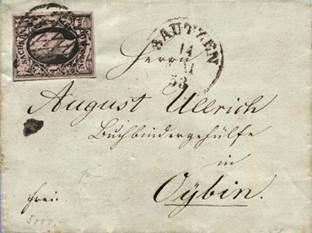 BAUTZEN
14
Herrn
August Ullrich
Buchbindergehülfe
in
Oybin.
frei.